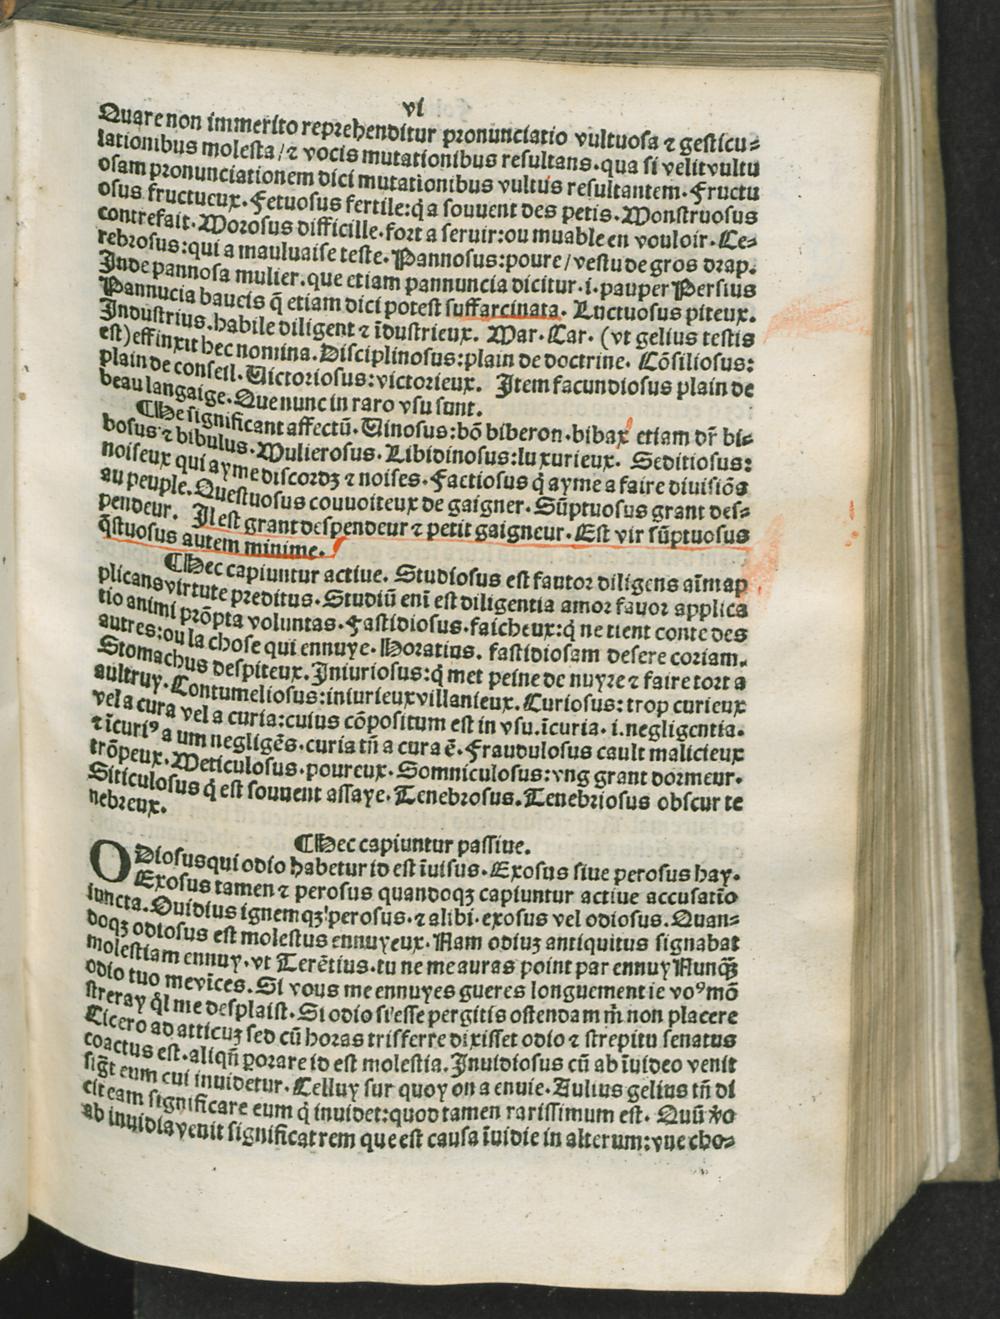 vi
Quare non immerito reprehenditur pronunciatio vultuosa ⁊ gesticu⸗
lationibus molesta/⁊ vocis mutationibus resultans.qua si velit vultu
osam pronunciationem dici mutationibus vultus resultantem.Fructu
osus fructueux.Fetuosus fertile:q̃ a souuent des petis.Monstruosus
contrefait.Morosus difficille.fort a seruir:ou muable en vouloir.Ce⸗
rebrosus:qui a mauluaise teste.Pannosus:poure/vestu de gros drap.
Inde pannosa mulier.que etiam pannuncia dicitur.i.pauper Persius
Pannucia baucis q̃ etiam dici potest suffarcinata. Luctuosus piteux.
Industrius.habile diligent ⁊ īdustrieux. Mar.Car.(vt gelius testis
est)effinxit hec nomina.Disciplinosus:plain de doctrine. Cōsiliosus:
plain de conseil.Victoriosus:victorieux. Item facundiosus plain de
beau langaige.Que nunc in raro vsu sunt.
¶He significant affectū.Vinosus:bō biberon.bibax etiam dr̄ bi⸗
bosus ⁊ bibulus.Mulierosus.Libidinosus:luxurieux. Seditiosus:
noiseux qui ayme discordz ⁊ noises.Factiosus q̃ ayme a faire diuisiōs
au peuple.Questuosus couuoiteux de gaigner.Sūptuosus grant des⸗
pendeur. Il est grant despendeur ⁊ petit gaigneur.Est vir sūptuosus
q̃stuosus autem minime.
¶Hec capiuntur actiue. Studiosus est fautor diligens aīm ap
plicans virtute preditus.Studiū enī est diligentia amor fauor applica
tio animi prōpta voluntas.Fastidiosus.faicheux:q̃ ne tient conte des
autres:ou la chose qui ennuye.Horatius. fastidiosam desere coriam.
Stomachus despiteux.Iniuriosus:q̃ met peine de nuyre ⁊ faire tort a
aultruy.Contumeliosus:iniurieux villanieux.Curiosus:trop curieux
vel a cura vel a curia:cuius cōpositum est in vsu.īcuria.i.negligentia.
⁊ īcuriꝰ a um negligēs.curia tñ a cura ē.Fraudulosus cault malicieux
trōpeux.Meticulosus.poureux.Somniculosus:vng grant dormeur.
Siticulosus q̃ est souuent assaye.Tenebrosus.Tenebriosus obscur te
nebreux.
¶Hec capiuntur passiue.
ODiosus qui odio habetur id est īuisus.Exosus siue perosus hay.
Exosus tamen ⁊ perosus quandoqꝫ capiuntur actiue accusatīo
iuncta.Ouidius ignemqꝫ perosus.⁊ alibi.exosus vel odiosus.Quan⸗
doqꝫ odiosus est molestus ennuyeux.Nam odiuꝫ antiquitus signabat
molestiam ennuy.vt Terētius.tu ne me auras point par ennuy Nunqꝫ̃
odio tuo me vīces.Si vous me ennuyes gueres longuement ie voꝰ mō
streray q̃l me desplaist.Si odio si esse pergitis ostendam m̄ non placere
Cicero ad atticuꝫ sed cū horas tris ferre dixisset odio ⁊ strepitu senatus
coactus est.aliqñ ꝑorare id est molestia.Inuidiosus cū ab īuideo venit
sigt̄ eum cui inuidetur.Celluy sur quoy on a enuie.Aulius gelius tñ di
cit eam significare eum q̃ inuidet:quod tamen rarissimum est. Quū v̄o
ab inuidia venit significat rem que est causa īuidie in alterum:vne cho⸗